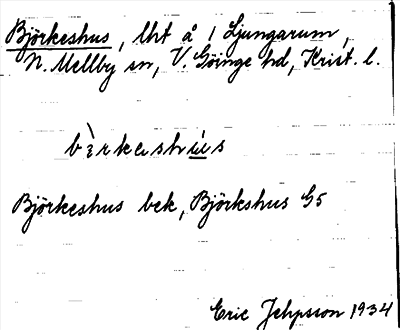 Björkeshus, lht å 1 Ljungarum,
N. Mellby sn, V. Göinge hd, Krist. l.
bìrkashús
Björkeshus bek, Björkshus G5
Eric Jehpsson 1934